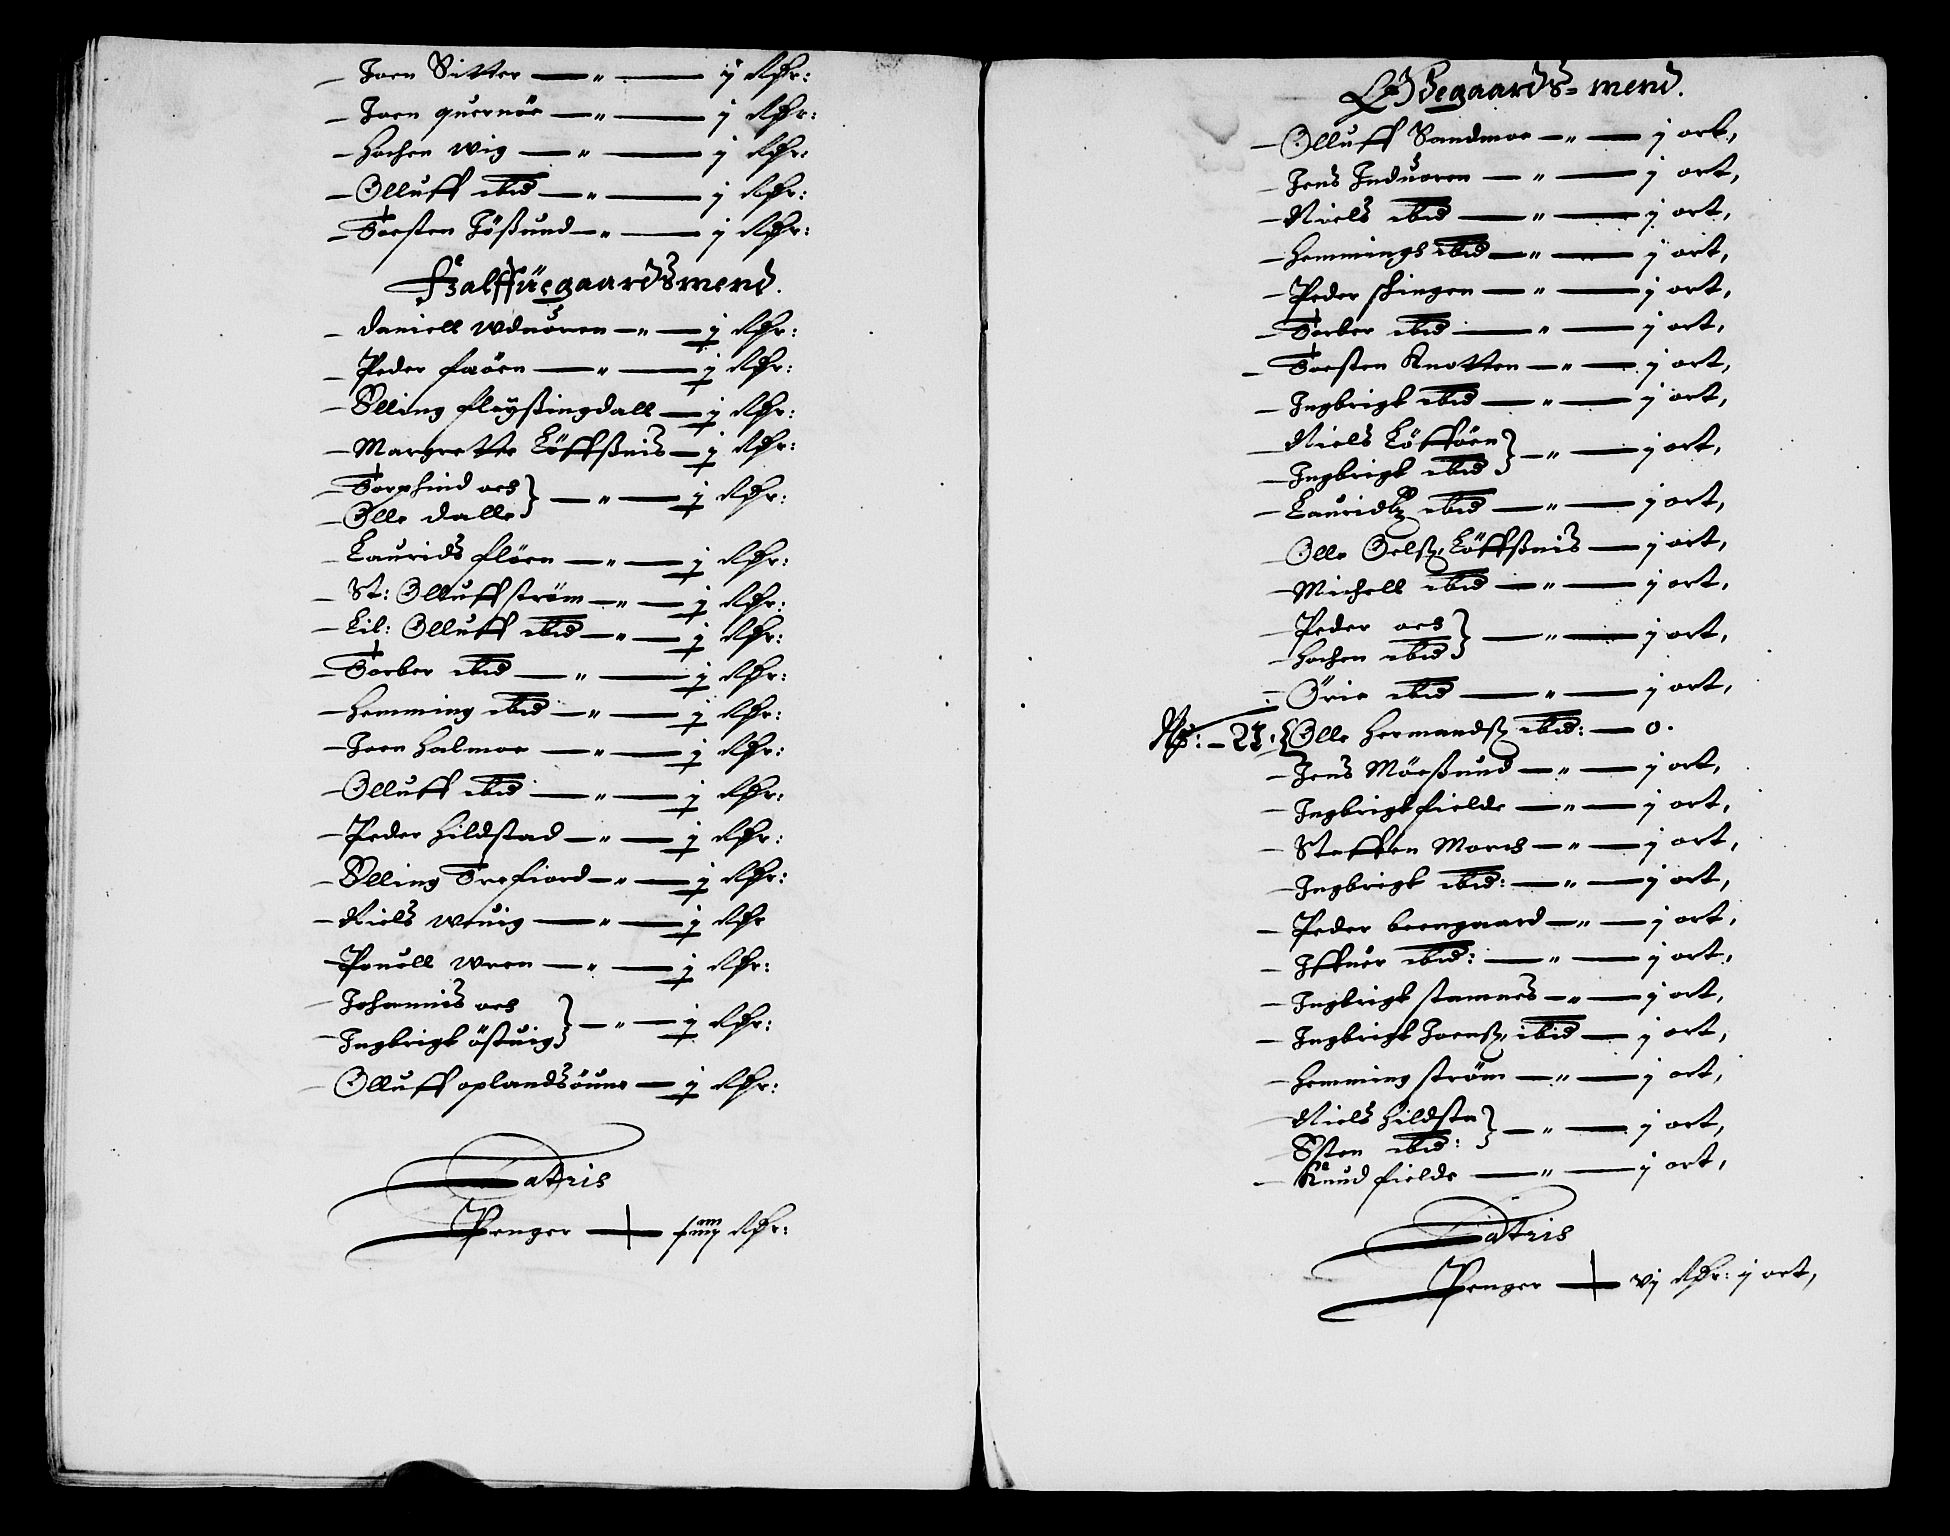 Joen Sitter — " — j Rdr:
Joen quernöe — " — j Rdr:
Hochen Wig — " — j Rdr:
Olluff ibid — " — j Rdr:
Torsten Tößund — " — j Rdr:
Halffüegaardsmend.
Daniell Wduören — " — j Rdr:
Peder faöen — " — j Rdr:
Elling fløyßingdall — j Rdr:
Margrette Löffßnis — j Rdr:
Torphind aes } — " — j Rdr:
Olle Dalle
Laurids flöen — " — j Rdr:
St: Olluff ström — " — j Rdr:
Lil: Olluff ibid — " — j Rdr:
Torber ibid — " — j Rdr:
Hemming ibid — " — j Rdr:
Joen Halmoe — " — j Rdr:
Olluff ibid — " — j Rdr:
Peder Hildstad — " — j Rdr:
Elling Trefiord — " — j Rdr:
Niels Weuig — " — j Rdr
Pouell Wren — " — j Rdr:
Johannis aes } — " — j Rdr:
Ingbrigt östuig
Olluff oplandsöune — j Rdr:
Latris
Penger — Rdr:
Ødegaards-mend.
Olluff Sandmoe — " — j ort,
Jens Induoren — " — j ort,
Niels ibid — " — j ort,
Hemmings ibid — " — j ort,
Peder skingen — " — j ort,
Torber ibid — " — j ort,
Torsten Knotten — " — j ort,
Ingbrigt ibid — " — j ort,
Niels Löfföen } — " — j ort,
Ingbrigt ibid
Lauridtz ibid — " — j ort,
Olle Oelß, Löffßnis — j ort,
Michell ibid — " — j ort,
Peder aes } — " — j ort,
Hochen ibid
Örie ibid — " — j ort,
Olle Hermandß ibid: — 0.
Jens Möeßund — " — j ort,
Ingbrigt fielde — " — j ort,
Steffen Moeres — " — j ort,
Ingbrigt ibid: — " — j ort,
Peder beengaard — " — j ort,
Iffuer ibid: — " — j ort,
Ingbrigt stamnes — " — j ort,
Ingbrigt Joenß, ibid — j ort,
Hemming ström — " — j ort,
Niels Hildsta } — " — j ort,
Esten ibid:
Knud fielde — " — j ort,
Latris
Penger — vj Rdr: j ort,